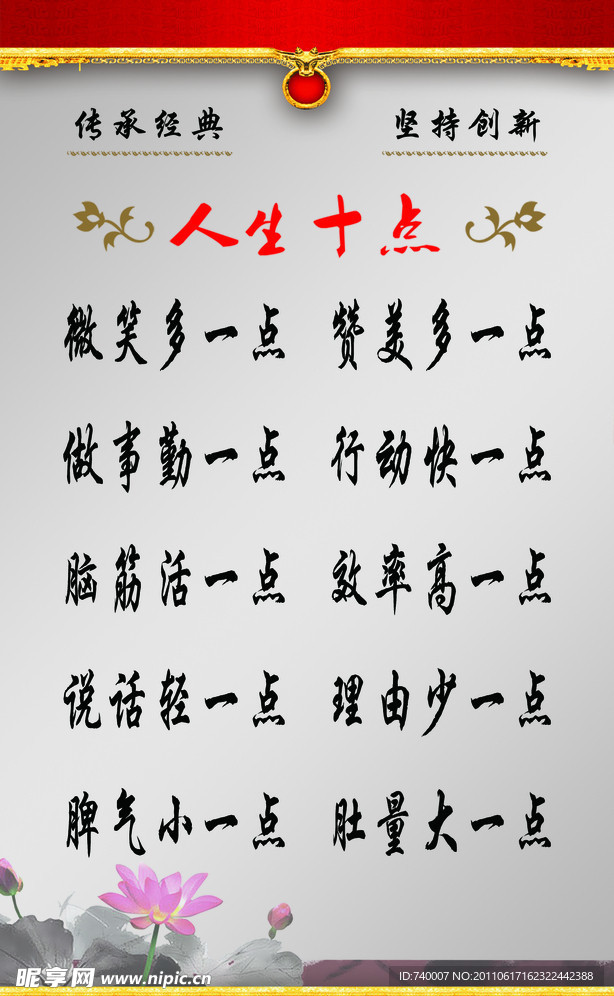 传承经典 坚持创新
人生十点
微笑多一点 赞美多一点
做事勤一点 行动快一点
脑筋活一点 效率高一点
说话轻一点 理由少一点
脾气小一点 肚量大一点
昵享网 www.nipic.cn
ID:740007 NO:20110617162322442388